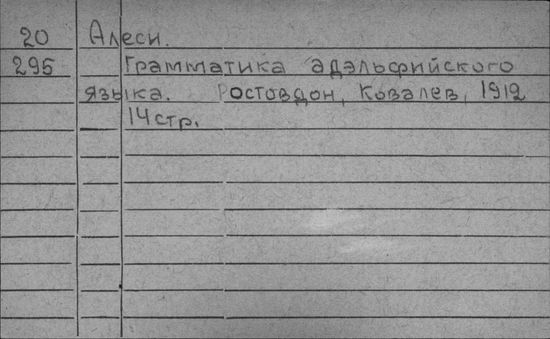 20 Алеси.
295 Грамматика адэльфийского
языка. Ростовдон, Ковалев, 1912
14 стр.